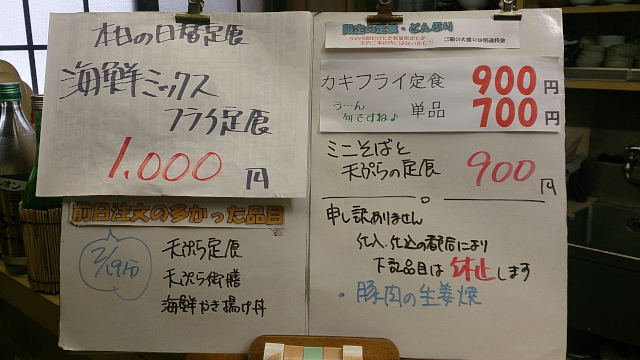 本日の日替定食
海鮮ミックス
フライ定食
1,000円
前日注文の多かった品目
2/19分
天ぷら定食
天ぷら御膳
海鮮かき揚げ丼
限定の定食・どんぶり
ご飯の大盛りは別途料金
カキフライ定食 900円
うーん
旬ですね♪
単品 700円
ミニそばと
天ぷらの定食 900円
申し訳ありません
仕入、仕込の都合により
下記品目は休止します
・豚肉の生姜焼